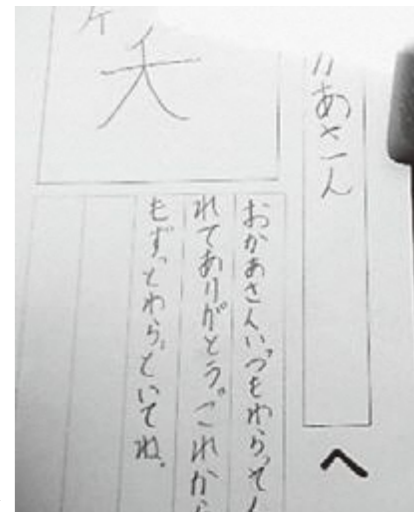 かあさんへ
笑
おかあさんいつもわらってく
れてありがとう。これから
もずっとわらっていてね。